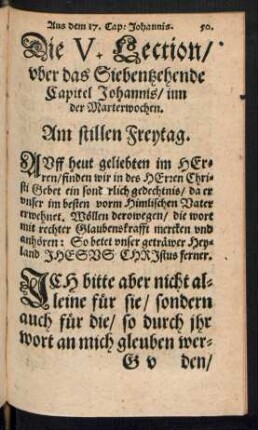 Aus dem 17. Cap: Johannis. 50.
Die V. Lection/
vber das Siebentzehende
Capitel Johannis/ inn
der Marterwochen.
Am stillen Freytag.
AVff heut geliebten im HEr-
ren/ finden wir in des HErren Chri-
sti Gebet ein sond rlich gedechtnis/ da er
vnser im besten vorm Himlischen Vater
erwehnet. Wöllen derowegen/ die wort
mit rechter Glaubenskrafft mercken vnd
anhören: So betet vnser getrăwer Hey-
land JHESVS CHRJstus ferner.
JCH bitte aber nicht al-
leine für sie/ sondern
auch für die/ so durch jhr
wort an mich gleuben wer-
G v den/